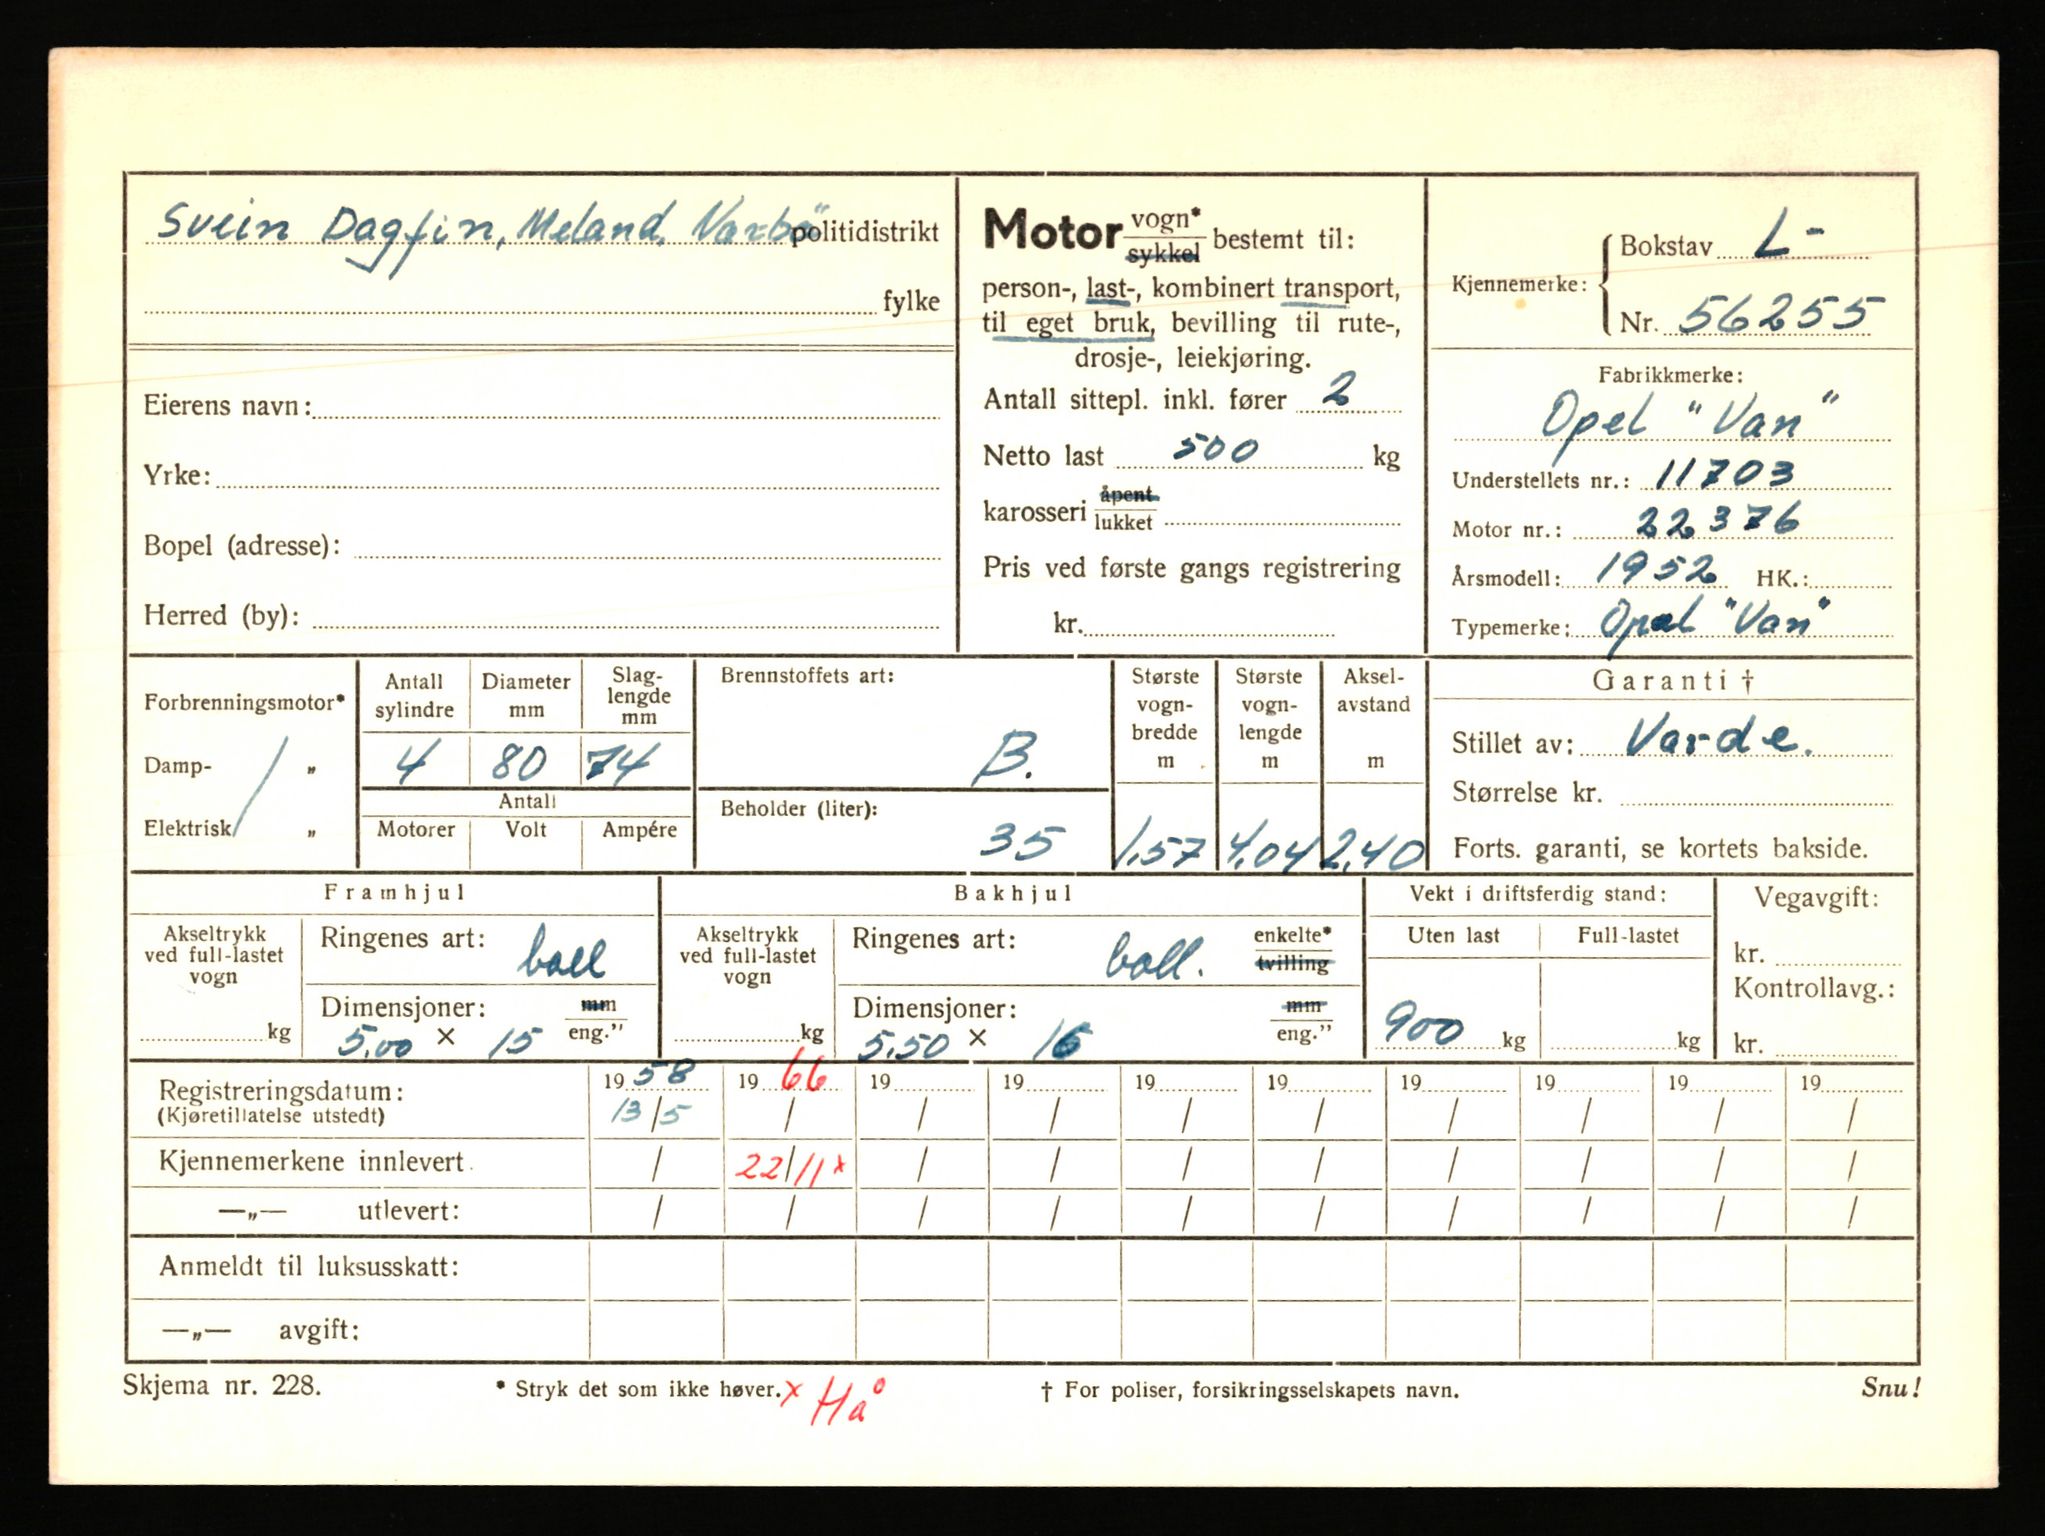 Svein Dagfin, Meland, politidistrikt
fylke
Eierens navn:
Yrke:
Bopel (adresse):
Herred (by):
Motor vogn* sykkel bestemt til:
person-, last-, kombinert transport,
til eget bruk, bevilling til rute-,
drosje-, leiekjøring.
Antall sittepl. inkl. fører 2
Netto last 500 kg
karosseri åpent lukket
Pris ved første gangs registrering
kr.
Kjennemerke: Bokstav L-
Nr. 56255
Fabrikkmerke:
Opel "Van"
Understellets nr.: 11703
Motor nr.: 22376
Årsmodell: 1952 HK.:
Typemerke: Opel "Van"
Forbrenningsmotor*
Damp- / „
Elektrisk „
Antall sylindre Diameter mm Slag-lengde mm
4 80 74
Antall
Motorer Volt Ampére
Brennstoffets art:
B.
Beholder (liter):
35
Største vogn-bredde m
1.57
Største vogn-lengde m
4.04
Aksel-avstand m
2.40
Garanti †
Stillet av: Varde.
Størrelse kr.
Forts. garanti, se kortets bakside.
Framhjul
Akseltrykk ved full-lastet vogn
kg
Ringenes art: ball
Dimensjoner: mm
5.00 × 15 eng."
Bakhjul
Akseltrykk ved full-lastet vogn
kg
Ringenes art: ball. enkelte* tvilling
Dimensjoner: mm
5.50 × 16 eng."
Vekt i driftsferdig stand:
Uten last Full-lastet
900 kg kg
Vegavgift:
kr.
Kontrollavg.:
kr.
Registreringsdatum: 19 58 19 66 19 19 19 19 19 19 19 19
(Kjøretillatelse utstedt) 13/5 / / / / / / / / /
Kjennemerkene innlevert / 22/11 x / / / / / / / /
—„— utlevert: / / / / / / / / / /
Anmeldt til luksusskatt:
—„— avgift:
Skjema nr. 228. * Stryk det som ikke høver. x Hå † For poliser, forsikringsselskapets navn. Snu!